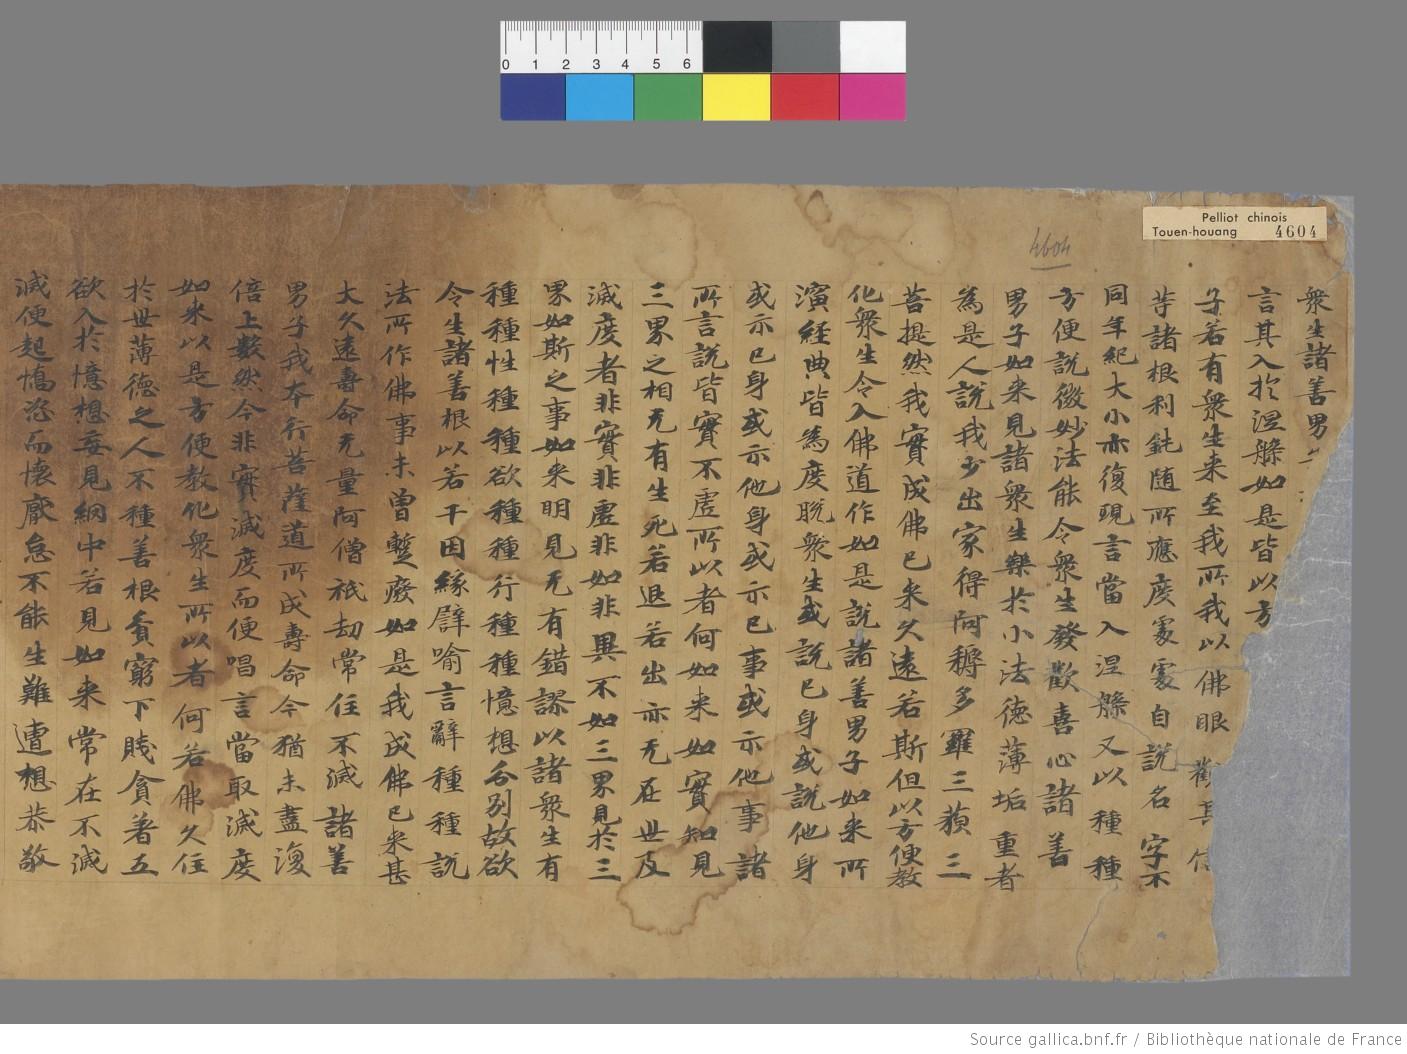 Pelliot chinois
Touen-houang 4604
4604
0 1 2 3 4 5 6
衆生諸善男
言其入於涅槃如是皆以方
子若有衆生来至我所我以佛眼觀其信
等諸根利鈍随所應度䖏䖏自説名字不
同年紀大小亦復現言當入涅槃又以種種
方便説微妙法能令衆生發歡喜心諸善
男子如来見諸衆生樂於小法德薄垢重者
為是人説我少出家得阿耨多羅三藐三
菩提然我實成佛已来久遠若斯但以方便教
化衆生令入佛道作如是説諸善男子如来所
演經典皆為度脱衆生或説己身或説他身
或示己身或示他身或示己事或示他事諸
所言説皆實不虚所以者何如来如實知見
三界之相无有生死若退若出亦无在世及
滅度者非實非虚非如非異不如三界見於三
界如斯之事如来明見无有錯謬以諸衆生有
種種性種種欲種種行種種憶想分别故欲
令生諸善根以若干因緣譬喻言辭種種説
法所作佛事未曾蹔癈如是我成佛已来甚
大久遠壽命无量阿僧祇劫常住不滅諸善
男子我本行菩薩道所成壽命今猶未盡復
倍上數然今非實滅度而便唱言當取滅度
如来以是方便教化衆生所以者何若佛久住
於世薄德之人不種善根貧窮下賤貪著五
欲入於憶想妄見網中若見如来常在不滅
滅便起憍恣而懷厭怠不能生難遭想恭敬
Source gallica.bnf.fr / Bibliothèque nationale de France